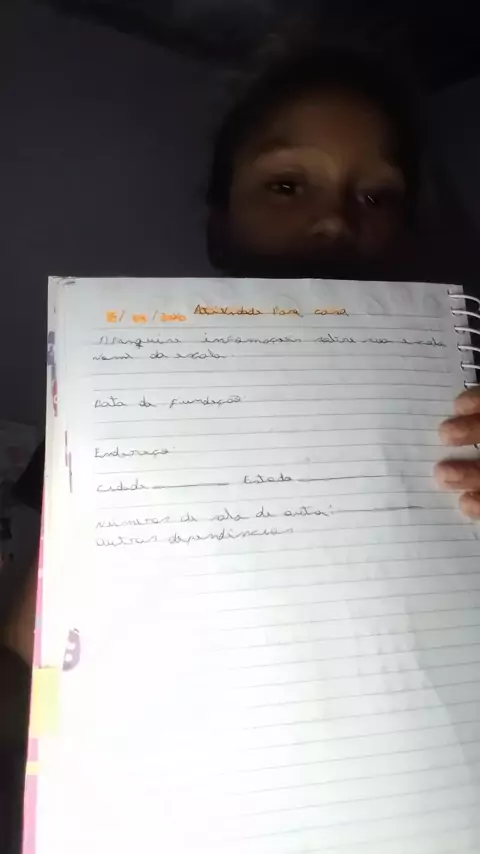 Atividade Para casa
1) Pesquise informações sobre sua escola
Nome da escola.
Data de Fundação
Endereço
Cidade Estado
Números de sala de aula:
outras dependências